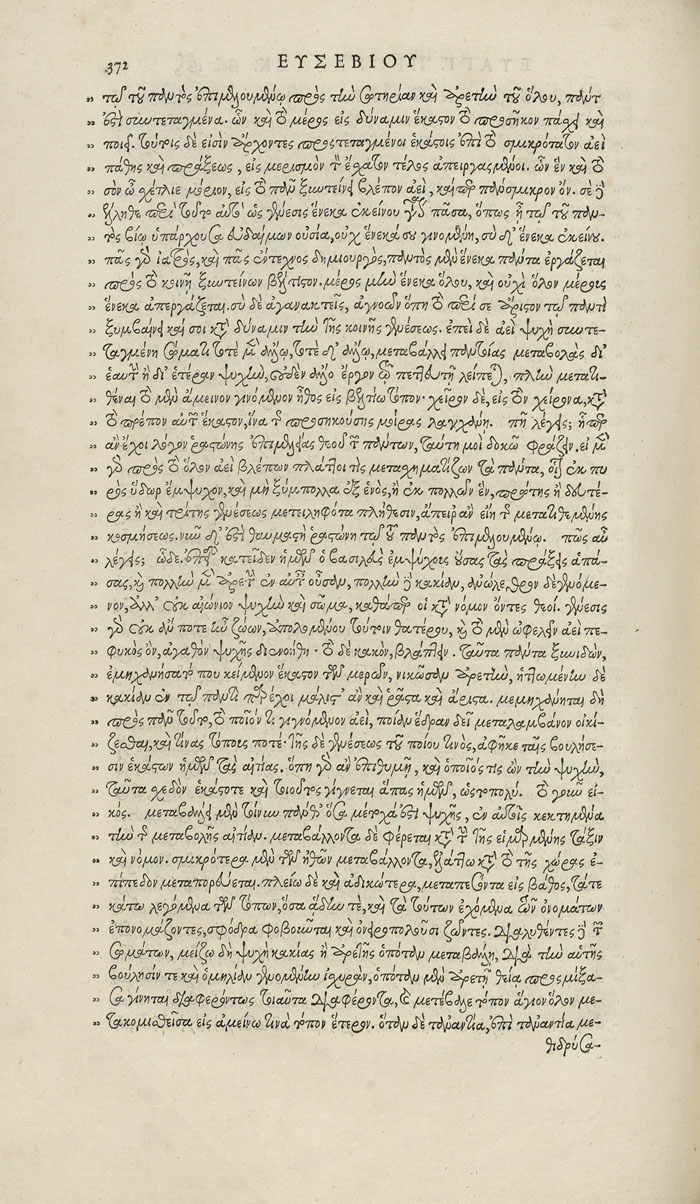 372 ΕΥΣΕΒΙΟΥ
» τῷ τοῦ παντὸς ἐπιμελουμένῳ πρὸς τὴν σωτηρίαν καὶ ἀρετὴν τοῦ ὅλου, πάντ
» ἐστὶ συντεταγμένα. ὧν καὶ τὸ μέρος εἰς δύναμιν ἕκαστον τὸ προσῆκον πάσχει καὶ
» ποιεῖ. τούτοις δὲ εἰσὶν ἄρχοντες προστεταγμένοι ἑκάστοις ἐπὶ τὸ σμικρότατον ἀεὶ
» πάθης καὶ πράξεως, εἰς μερισμὸν τὸν ἔσχατον τέλος ἀπειργασμένοι. ὧν ἓν καὶ τὸ
» σὸν ὦ σχέτλιε μόριον, εἰς τὸ πᾶν ξυντείνει βλέπον ἀεὶ, καίπερ πάνσμικρον ὄν. σὲ δὲ
» λέληθε περὶ τοῦτο αὐτὸ ὡς γένεσις ἕνεκα ἐκείνου γίγνεται πᾶσα, ὅπως ᾖ τῷ τοῦ παν-
» τὸς βίῳ ὑπάρχουσα εὐδαίμων οὐσία, οὐχ ἕνεκά σου γινομένη, σὺ δ' ἕνεκα ἐκείνου.
» πᾶς γὰρ ἰατρὸς, καὶ πᾶς ἔντεχνος δημιουργὸς, παντὸς μὲν ἕνεκα πάντα ἐργάζεται
» πρὸς τὸ κοινῇ ξυντείνων βέλτιστον. μέρος μὴν ἕνεκα ὅλου, καὶ οὐχὶ ὅλον μέρους
» ἕνεκα ἀπεργάζεται. σὺ δὲ ἀγανακτεῖς, ἀγνοῶν ὅπη τὸ περὶ σὲ ἄριστον τῷ παντὶ
» ξυμβαίνει καὶ σοὶ κατὰ δύναμιν τὴν τῆς κοινῆς γενέσεως. ἐπεὶ δὲ ἀεὶ ψυχὴ συντε-
» ταγμένη σώματι τοτὲ μὲν ἄλλῳ, τοτὲ δ' ἄλλῳ, μεταβάλλει παντοίας μεταβολὰς δι'
» ἑαυτὴν ἢ δι' ἑτέραν ψυχὴν, οὐδὲν ἄλλο ἔργον τῷ πεττευτῇ λείπεται, πλὴν μετατι-
» θέναι τὸ μὲν ἄμεινον γινόμενον ἦθος εἰς βελτίω τόπον· χεῖρον δὲ, εἰς τὸν χείρονα, κατὰ
» τὸ πρέπον αὐτῶν ἕκαστον, ἵνα τῆς προσηκούσης μοίρας λαγχάνῃ. πῆ λέγεις; ᾗπερ
» ἂν ἔχοι λόγον ῥᾳστώνης ἐπιμελείας θεοῦ τῶν πάντων, ταύτῃ μοι δοκῶ φράζειν. εἰ μὲν
» γὰρ πρὸς τὸ ὅλον ἀεὶ βλέπων πλάττοι τις μετασχηματίζων τὰ πάντα, οἷον ἐκ πυ
» ρὸς ὕδωρ ἔμψυχον, καὶ μὴ ξύμπολλα ἐξ ἑνὸς, ἢ ἐκ πολλῶν ἓν, πρώτης ἢ δευτέ-
» ρας ἢ καὶ τρίτης γενέσεως μετειληφότα πλήθεσιν, ἄπειρ' ἂν εἴη τῆς μετατιθεμένης
» κοσμήσεως. νῦν δ' ἐστὶ θαυμαστὴ ῥᾳστώνη τῷ τοῦ παντὸς ἐπιμελουμένῳ. πῶς αὖ
» λέγεις; ὧδε. ἐπειδὴ κατεῖδεν ἡμῶν ὁ βασιλεὺς ἐμψύχους οὔσας τὰς πράξεις ἁπά-
» σας, καὶ πολλὴν μὲν ἀρετὴν ἐν αὐταῖς οὖσαν, πολλὴν δὲ κακίαν, ἀνώλεθρον δὲ γενόμε-
» νον, ἀλλ' οὐκ αἰώνιον ψυχὴν καὶ σῶμα, καθάπερ οἱ κατὰ νόμον ὄντες θεοί. γένεσις
» γὰρ οὐκ ἄν ποτε ἦν ζώων, ἀπολομένου τούτοιν θατέρου, καὶ τὸ μὲν ὠφελεῖν ἀεὶ πε-
» φυκὸς ὂν, ἀγαθὸν ψυχῆς διενοήθη· τὸ δὲ κακὸν, βλάπτειν. ταῦτα πάντα ξυνιδὼν,
» ἐμηχανήσατό που κείμενον ἕκαστον τῶν μερῶν, νικῶσαν ἀρετὴν, ἡττωμένην δὲ
» κακίαν ἐν τῷ παντὶ παρέχοι μάλιστ' ἂν καὶ ῥᾷστα καὶ ἄριστα. μεμηχάνηται δὴ
» πρὸς πᾶν τοῦτο, τὸ ποῖόν τι γιγνόμενον ἀεὶ, ποίαν ἕδραν δεῖ μεταλαμβάνον οἰκί-
» ζεσθαι, καὶ τίνας τόπους ποτέ. τῆς δὲ γενέσεως τοῦ ποίου τινὸς, ἀφῆκε ταῖς βουλήσε-
» σιν ἑκάστων ἡμῶν τὰς αἰτίας. ὅπη γὰρ ἂν ἐπιθυμῇ, καὶ ὁποῖός τις ὢν τὴν ψυχὴν,
» ταῦτα σχεδὸν ἑκάστοτε καὶ τοιοῦτος γίγνεται ἅπας ἡμῶν, ὡς τὸ πολύ. τὸ γοῦν εἰ-
» κός. μεταβάλλει μὲν τοίνυν πάνθ' ὅσα μέτοχά ἐστι ψυχῆς, ἐν αὐτοῖς κεκτημένα
» τὴν τῆς μεταβολῆς αἰτίαν. μεταβάλλοντα δὲ φέρεται κατὰ τὴν τῆς εἱμαρμένης τάξιν
» καὶ νόμον. σμικρότερα μὲν τῶν ἠθῶν μεταβάλλοντα, ἐλάττω κατὰ τὸ τῆς χώρας ἐ-
» πίπεδον μεταπορεύεται. πλείω δὲ καὶ ἀδικώτερα, μεταπεσόντα εἰς βάθος, τά τε
» κάτω λεγόμενα τῶν τόπων, ὅσα ᾅδην τε, καὶ τὰ τούτων ἐχόμενα τῶν ὀνομάτων
» ἐπονομάζοντες, σφόδρα φοβοῦνται καὶ ὀνειροπολοῦσι ζῶντες. διαλυθέντες δὲ τῶν
» σωμάτων, μείζω δὴ ψυχὴ κακίας ἢ ἀρετῆς ὁπόταν μεταβάλῃ, διὰ τὴν αὑτῆς
» βούλησίν τε καὶ ὁμιλίαν γενομένην ἰσχυρὰν, ὁπόταν μὲν ἀρετῇ θείᾳ προσμίξα-
» σα γίνηται διαφερόντως τοιαῦτα διαφέροντα, καὶ μετέβαλε τόπον ἅγιον ὅλον με-
» τακομισθεῖσα εἰς ἀμείνω τινὰ τόπον ἕτερον. ὅταν δὲ τοὐναντία, ἐπὶ τοὐναντία με-
θιδρύσα-